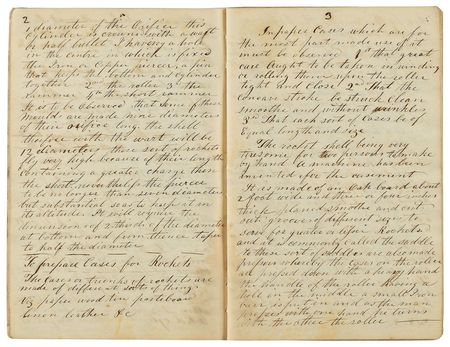 2
diameter of the Orifice this
Cylinder is crowned with a
or half bullet I having a hole
in the centre in which is fixed
the Iron or Copper piercer, a pin
that keeps the bottom and cylinder
together 2nd the roller 3d the
rammer 4th the short rammer
It is to be Observed that some of these
moulds are made nine diameters
of their orifice long, the shell
therefore with this wart will be
12 diameters these sort of rockets
fly very high because of their length
containing a greater charge than
the short, nevertheless the piercer
to be no longer than seven diameters
but substantial so as to keep it in
its attitude. It will require the
dimension of 2 thirds of the diameter
at bottom and from thence taper
to half the diameter
To prepare Cases for Rockets
The Cases or trunks of rockets are
made of different sorts of things
Viz paper wood tin pasteboard
linen leather &c
3
In paper Cases which are for
the most part made use of it
must be observed 1st that great
care Ought to be taken in winding
or rolling them upon the roller
tight and close 2nd That the
Concave Stroke be Struck Clean
Smooth and without wrinkles
3d That each sort of Cases be of
Equal length and size
The rocket shell being very
tiresome for two persons to make
by hand a machine has been
invented for the easement
It is made of an Oak board about
2 foat wide and three or four inches
thick planed smooth and about
with grooves of different sizes to
serve for greater or lesser Rockets
and it is commonly called the saddle
to these sort of saddles are also made
presses whereby the Cases on the roller
are pressed down with a heavy hand
the handle of the roller having a
hole on the middle a small Iron
over is put in and as the man
presses with one hand he turns
with the other the roller